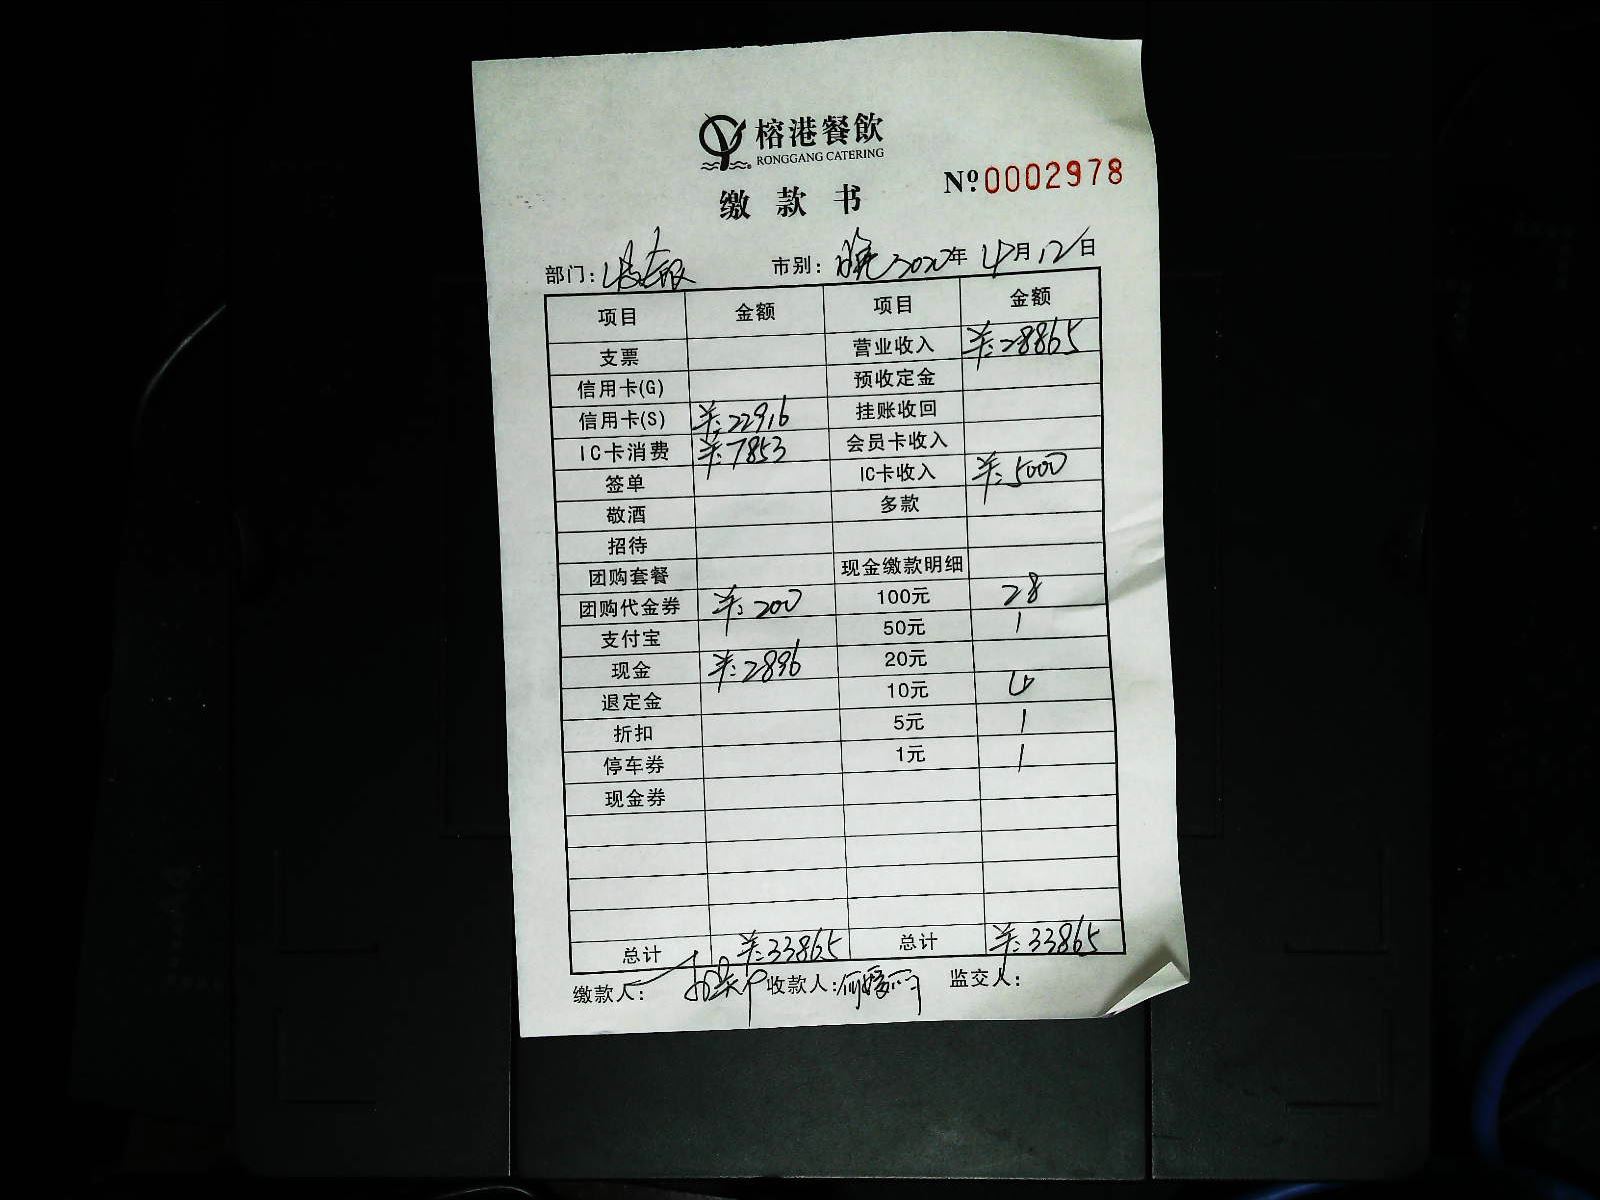 榕港餐飲
RONGGANG CATERING
缴款书
Nº 0002978
部门: 市别: 晚 2020年 4月12日
项目 金额 项目 金额
支票 营业收入 ¥:28865
信用卡(G) 预收定金
信用卡(S) ¥:22916 挂账收回
IC卡消费 ¥:7853 会员卡收入
签单 IC卡收入 ¥:5000
敬酒 多款
招待
团购套餐 现金缴款明细
团购代金券 ¥:200 100元 28
支付宝 50元 1
现金 ¥:2896 20元
退定金 10元 4
折扣 5元 1
停车券 1元 1
现金券
总计 ¥:33865 总计 ¥:33865
缴款人: 收款人: 监交人: